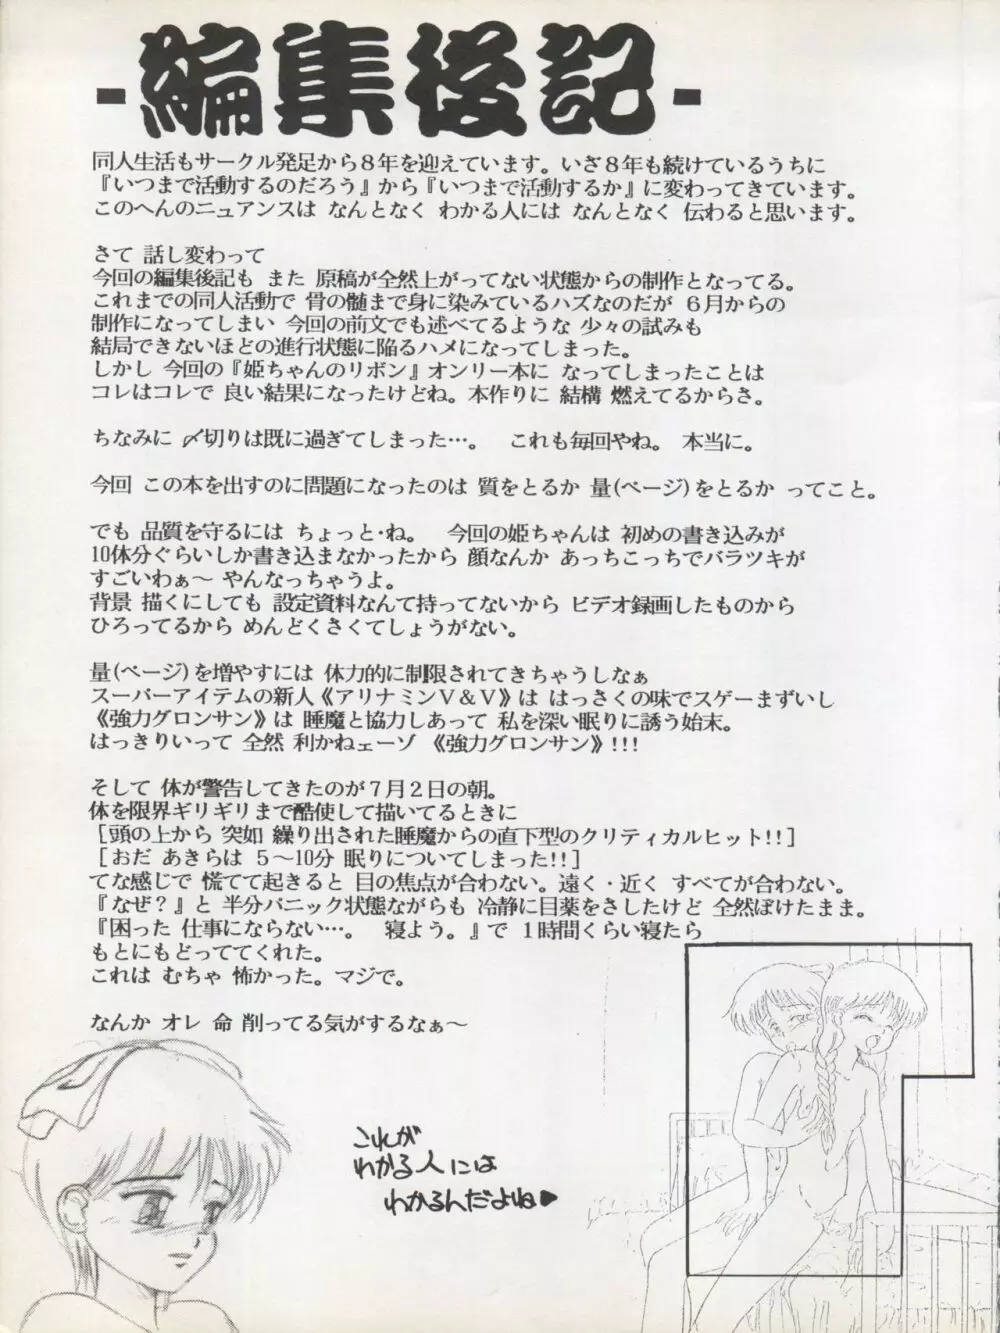 -編集後記-
同人生活もサークル発足から８年を迎えています。いざ８年も続けているうちに
『いつまで活動するのだろう』から『いつまで活動するか』に変わってきています。
このへんのニュアンスは なんとなく わかる人には なんとなく 伝わると思います。
さて 話し変わって
今回の編集後記も また 原稿が全然上がってない状態からの制作となってる。
これまでの同人活動で 骨の髄まで身に染みているハズなのだが ６月からの
制作になってしまい 今回の前文でも述べてるような 少々の試みも
結局できないほどの進行状態に陥るハメになってしまった。
しかし 今回の『姫ちゃんのリボン』オンリー本に なってしまったことは
コレはコレで 良い結果になったけどね。本作りに 結構 燃えてるからさ。
ちなみに 〆切りは既に過ぎてしまった…。　これも毎回やね。 本当に。
今回 この本を出すのに問題になったのは 質をとるか 量(ページ)をとるか ってこと。
でも 品質を守るには ちょっと・ね。　今回の姫ちゃんは 初めの書き込みが
10体分ぐらいしか書き込まなかったから 顔なんか あっちこっちでバラツキが
すごいわぁ～ やんなっちゃうよ。
背景 描くにしても 設定資料なんて持ってないから ビデオ録画したものから
ひろってるから めんどくさくてしょうがない。
量(ページ)を増やすには 体力的に制限されてきちゃうしなぁ
スーパーアイテムの新人《アリナミンＶ＆Ｖ》は はっさくの味でスゲーまずいし
《強力グロンサン》は 睡魔と協力しあって 私を深い眠りに誘う始末。
はっきりいって 全然 利かねェーゾ 《強力グロンサン》!!!
そして 体が警告してきたのが７月２日の朝。
体を限界ギリギリまで酷使して描いてるときに
[頭の上から 突如 繰り出された睡魔からの直下型のクリティカルヒット!!]
[おだ あきらは ５～10分 眠りについてしまった!!]
てな感じで 慌てて起きると 目の焦点が合わない。遠く・近く すべてが合わない。
『なぜ？』と 半分パニック状態ながらも 冷静に目薬をさしたけど 全然ぼけたまま。
『困った 仕事にならない…。　寝よう。』で １時間くらい寝たら
もとにもどっててくれた。
これは むちゃ 怖かった。マジで。
なんか オレ 命 削ってる気がするなぁ～
これが
わかる人には
わかるんだよね♥